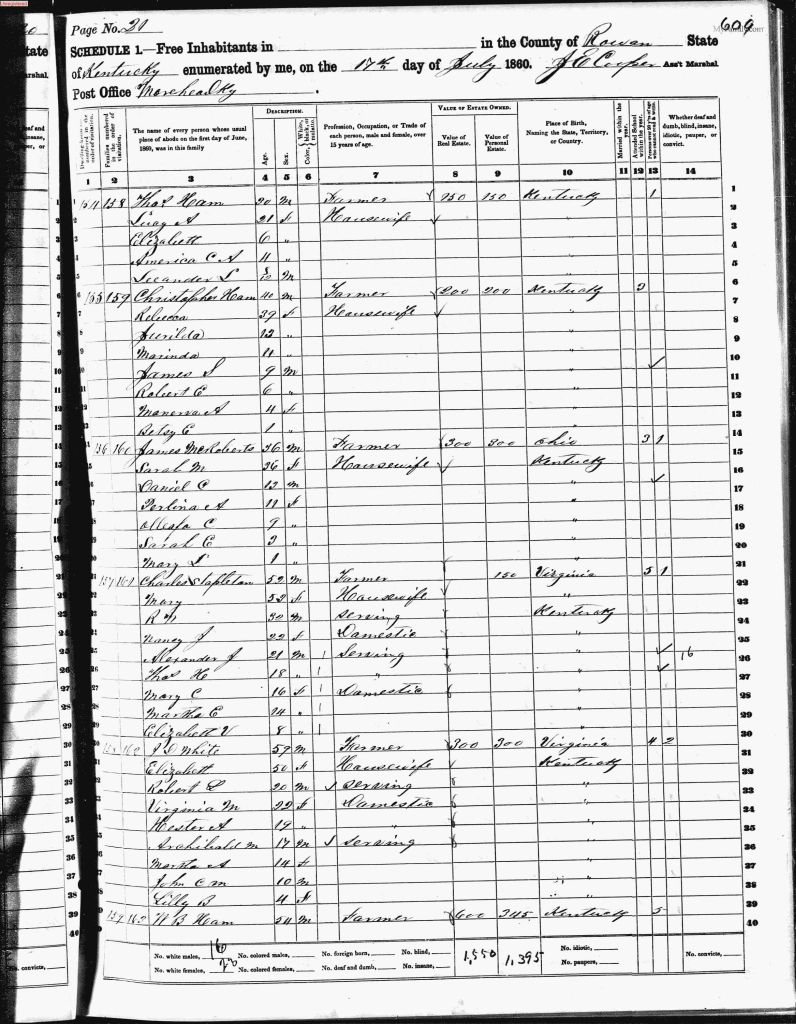 Page No. 21
609
SCHEDULE 1.—Free Inhabitants in in the County of Rowan State
of Kentucky enumerated by me, on the 17th day of July 1860. J E Cooper Ass't Marshal
Post Office Morehead Ky
DESCRIPTION. VALUE OF ESTATE OWNED.
Dwelling-houses numbered in the order of visitation. Families numbered in the order of visitation. The name of every person whose usual place of abode on the first day of June, 1860, was in this family Age. Sex. Color, White, black, or mulatto. Profession, Occupation, or Trade of each person, male and female, over 15 years of age. Value of Real Estate. Value of Personal Estate. Place of Birth, Naming the State, Territory, or Country. Married within the year. Attended School within the year. Persons over 20 y'rs of age who cannot read & write. Whether deaf and dumb, blind, insane, idiotic, pauper, or convict.
1 2 3 4 5 6 7 8 9 10 11 12 13 14
1 154 158 Thos Ham 20 m Farmer 150 150 Kentucky 1 1
2 A 21 f Housewife " 2
3 Elizabeth 6 " 3
4 America C A 4 " " 4
5 Leeander S m " 5
6 155 159 Christopher Ham 40 m Farmer 200 200 Kentucky 6
7 Rebecca 39 f Housewife " 7
8 Jurilda 13 " " 8
9 Marinda 11 " " 9
10 James S 9 m " 10
11 Robert E 6 " " 11
12 Manerva A 4 f " 12
13 Betsy E 1 " " 13
14 156 160 James McRoberts 36 m Farmer 300 300 Ohio 3 1 14
15 Sarah M 36 f Housewife Kentucky 15
16 Daniel C 13 m " 16
17 Perlina A 11 f " 17
18 C 9 " " 18
19 Sarah E 3 " " 19
20 Mary S 1 " " 20
21 157 161 Charles Stapleton 52 m Farmer 150 Virginia 5 1 21
22 Mary 53 f Housewife " 22
23 30 m Serving Kentucky 23
24 Nancy J 22 f Domestic " 24
25 Alexander J 21 m Serving " 16 25
26 Thos H 18 " " " 26
27 Mary C 16 f Domestic " 27
28 Martha E 14 " " 28
29 Elizabeth V 8 " " 29
30 158 162 J D White 59 m Farmer 300 300 Virginia 4 2 30
31 Elizabeth 50 f Housewife Kentucky 31
32 Robert L 20 m Serving " 32
33 Virginia M 22 f Domestic " 33
34 Hester A 19 " " " 34
35 Archibald M 17 m Serving " 35
36 Martha A 14 f " 36
37 John C M 10 m " 37
38 Lilly B 4 f " 38
39 159 163 W B Ham 54 m Farmer 600 345 Kentucky 5 39
40 40
No. white males, 16 No. colored males, No. foreign born, No. blind, 1,550 1,395 No. idiotic, No. convicts,
No. white females, 23 No. colored females, No. deaf and dumb, No. insane, No. paupers,